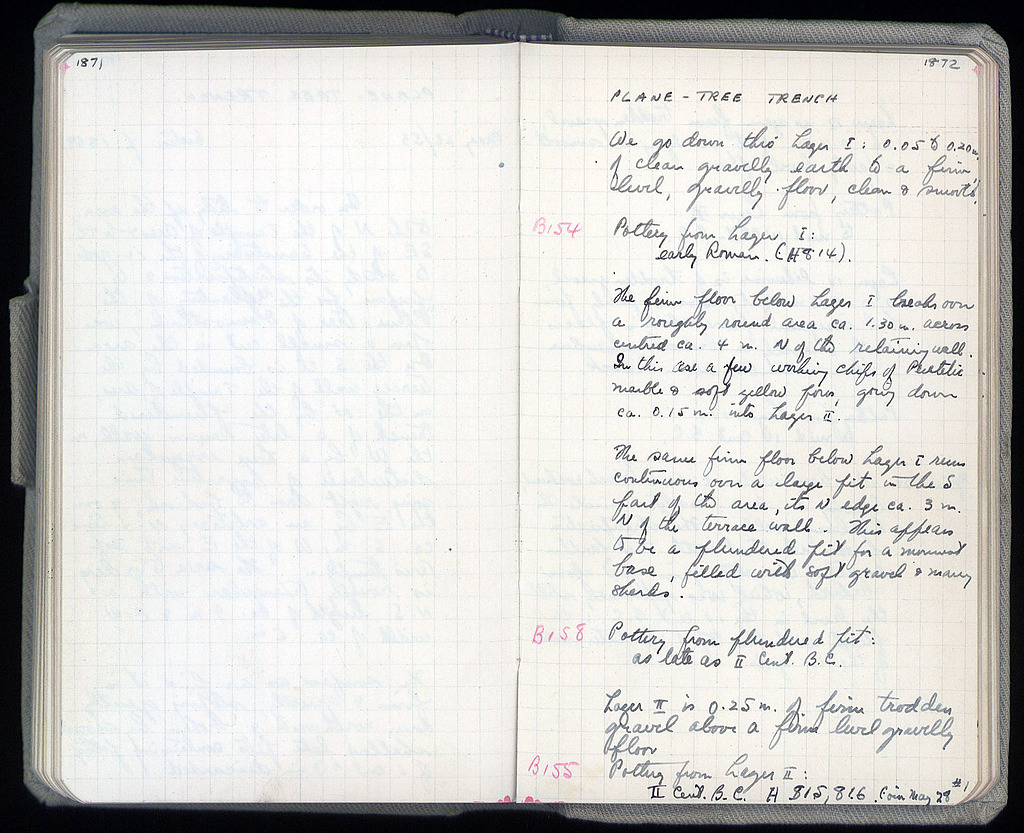 1871
1872
PLANE - TREE TRENCH
We go down thro' Layer I : 0.05 to 0.20 m.
of clean gravelly earth to a firm,
level, gravelly floor, clean & smooth.
B154 Pottery from Layer I :
early Roman. (H814).
The firm floor below Layer I breaks over
a roughly round area ca. 1.30 m. across
centred ca. 4 m. N of the retaining wall.
In this are a few working chips of Pentelic
marble & soft yellow poros, going down
ca. 0.15 m. into Layer II.
The same firm floor below Layer I runs
continuous over a large pit in the S
part of the area, its N edge ca. 3 m.
N of the terrace wall. This appears
to be a plundered pit for a monument
base, filled with soft gravel & many
sherds.
B158 Pottery from plundered pit :
as late as II Cent. B.C.
Layer II is 0.25 m. of firm trodden
gravel above a firm level gravelly
floor
B155 Pottery from Layer II :
II Cent. B.C. H 815, 816. Coin May 28 #1